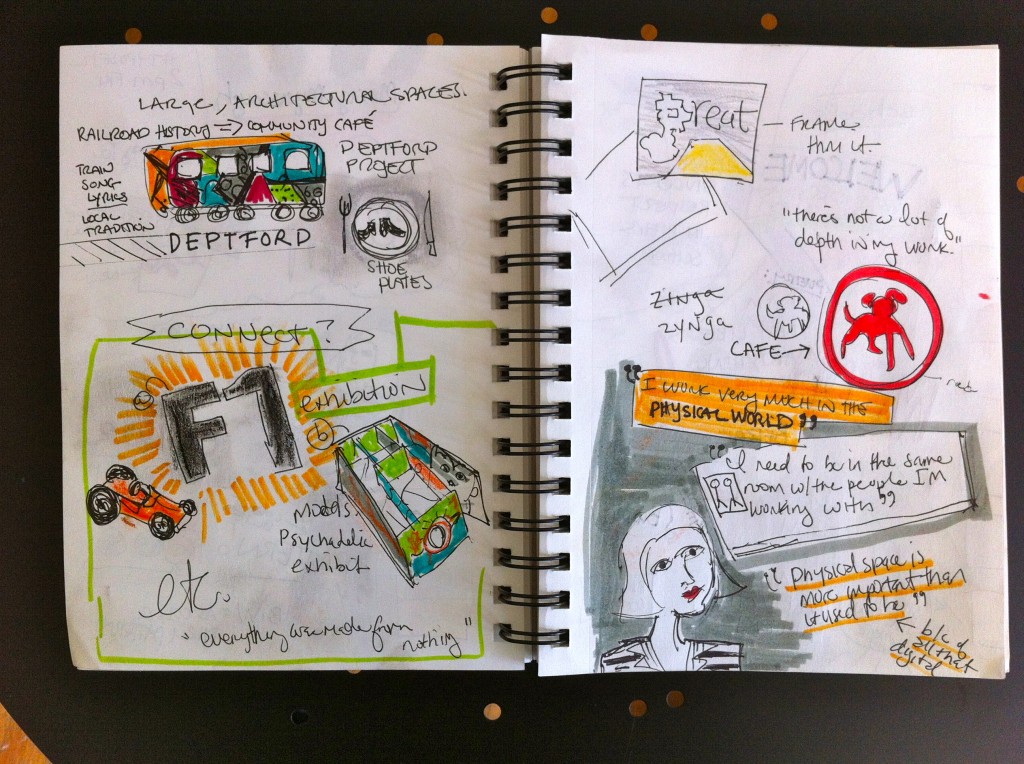 LARGE, ARCHITECTURAL SPACES.
RAILROAD HISTORY => COMMUNITY CAFÉ
TRAIN
SONG
LYRICS
LOCAL
TRADITION
DEPTFORD
PROJECT
DEPTFORD
SHOE
PLATES
CONNECT?
F1
exhibition
b
models
Psychadelic
exhibit
etc.
"everything was made from
nothing"
great
FRAME
thru it
"there's not a lot of
depth in my work."
ZINga
ZYNga
CAFE →
red
"I WORK VERY MUCH IN THE
PHYSICAL WORLD"
"I need to be in the same
room w/ the people I'm
working with"
"physical space is
more important than
it used to be"
b/c of
all that
digital
WELCOME